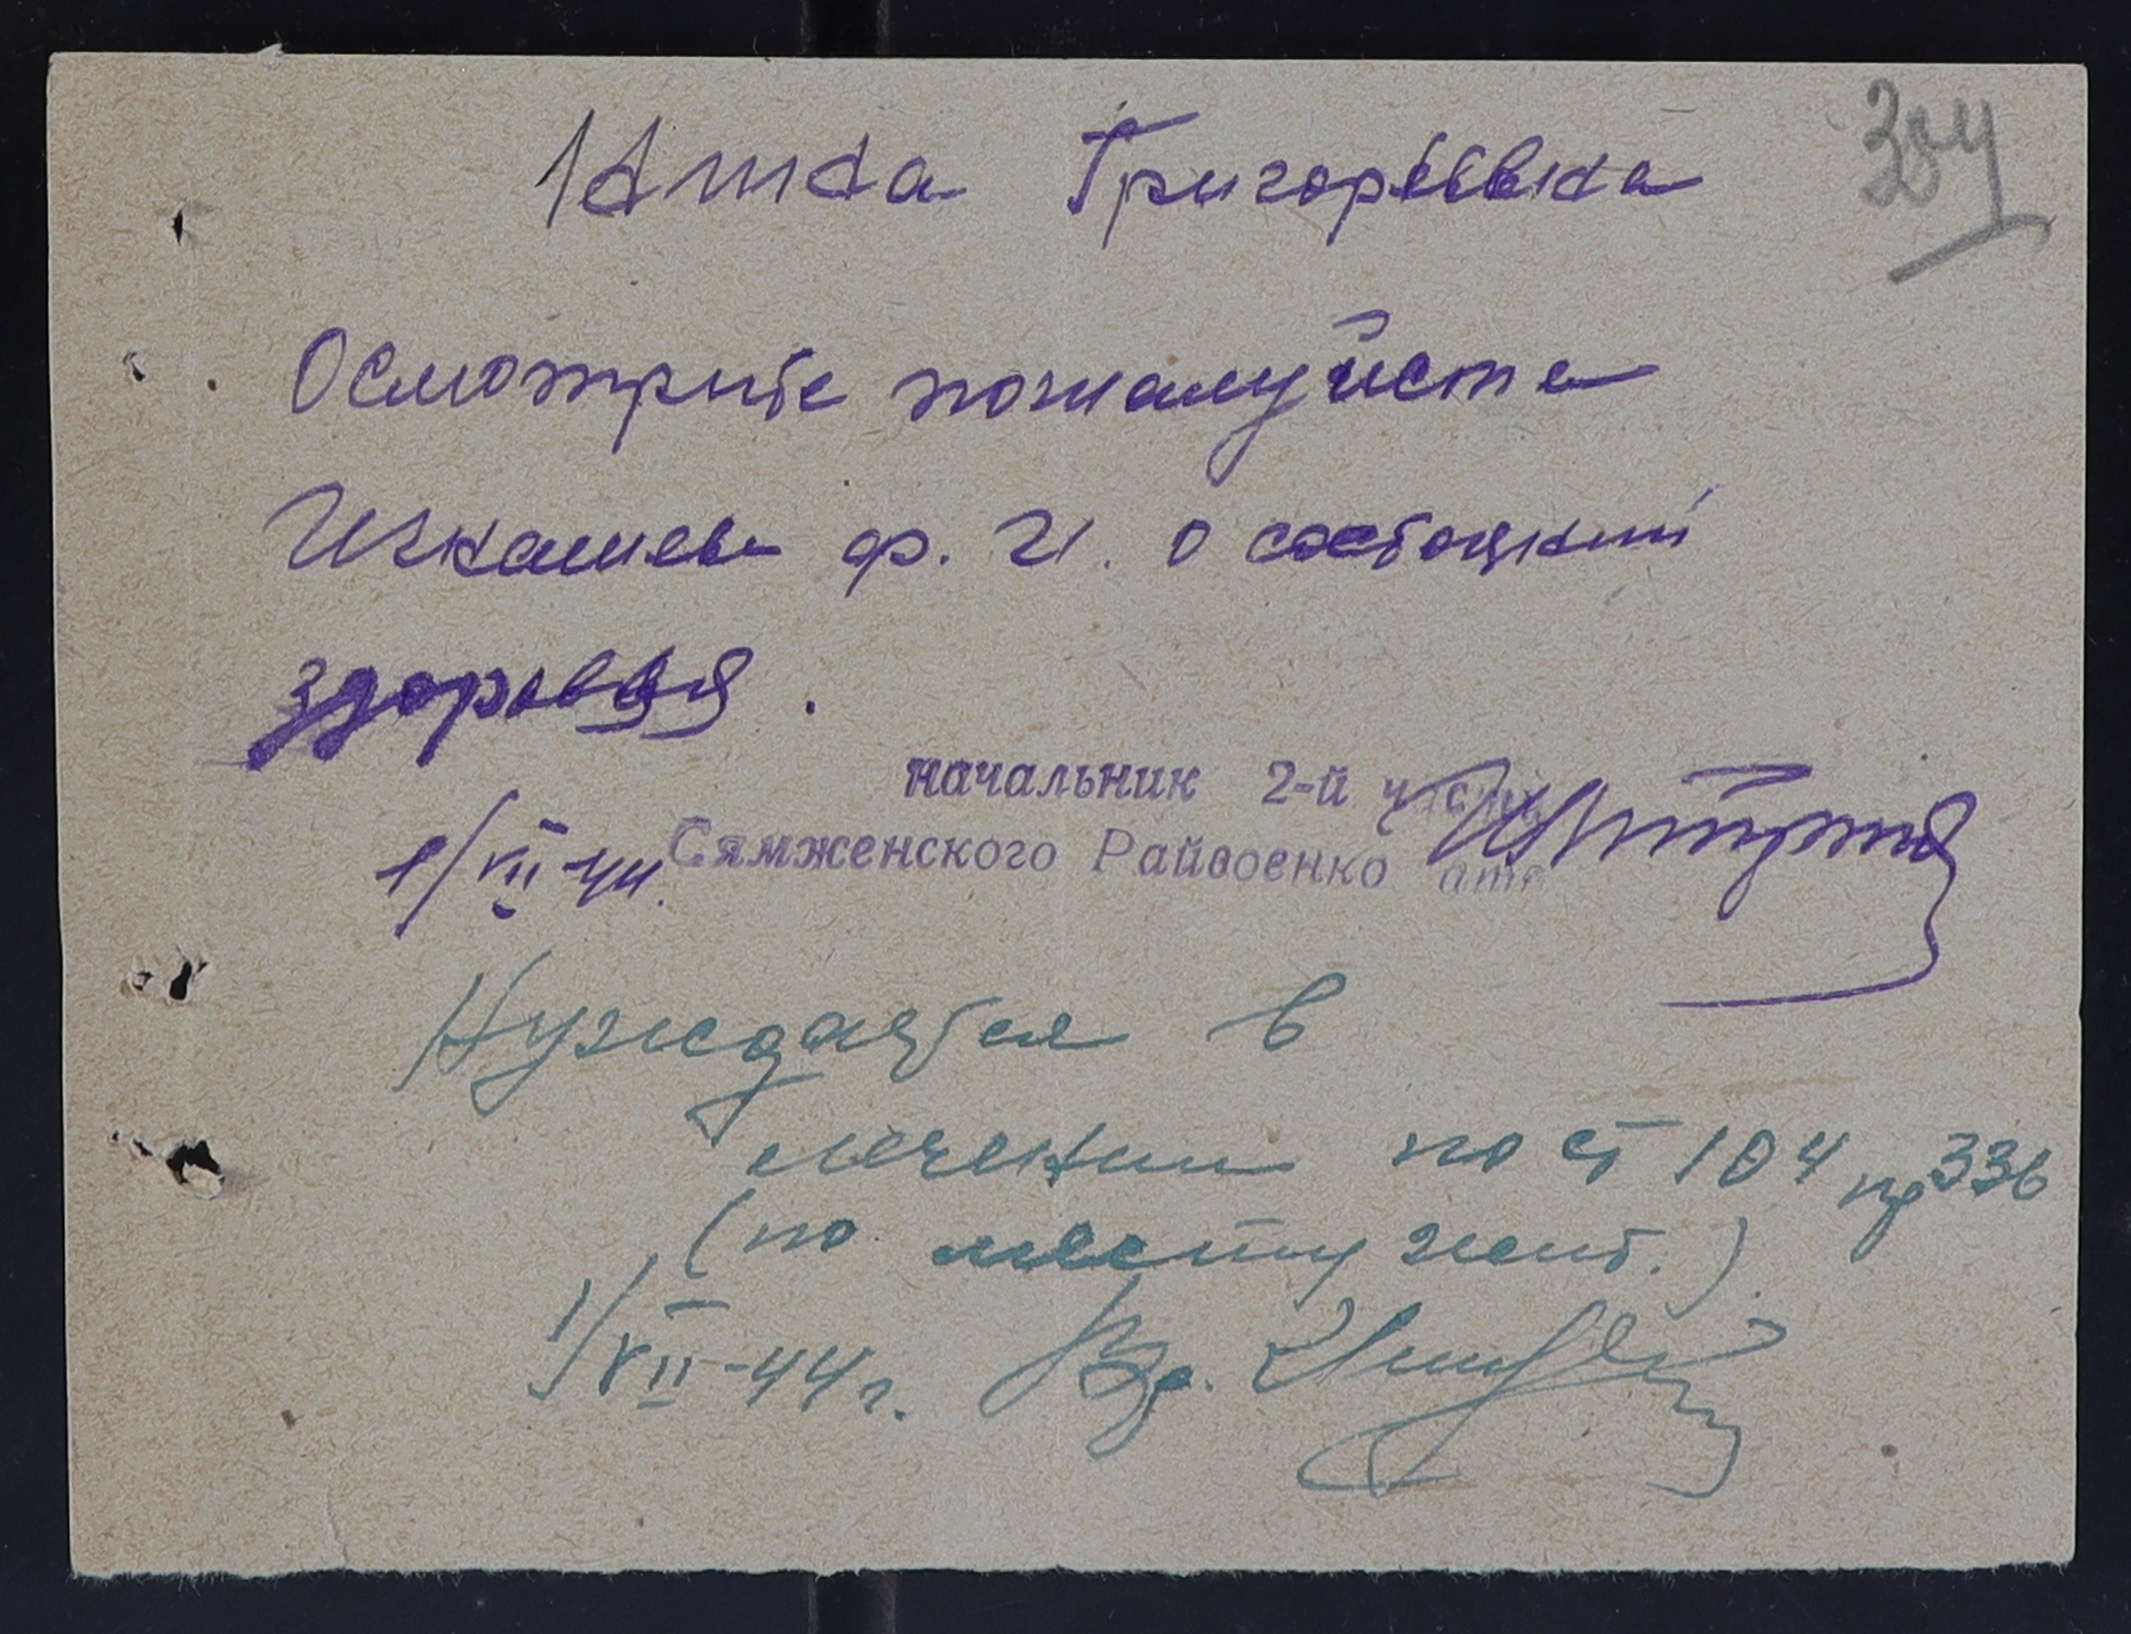 304
Григорьевна
Осмотрите пожалуйста
ф. И. о состоянии
здоровья.
начальник 2-й части
1/VII-44. Сямженского Райвоенкомата
Нуждается в
лечении по ст 104 пр 336
(по месту жит.)
1/VII-44 г. Вр.